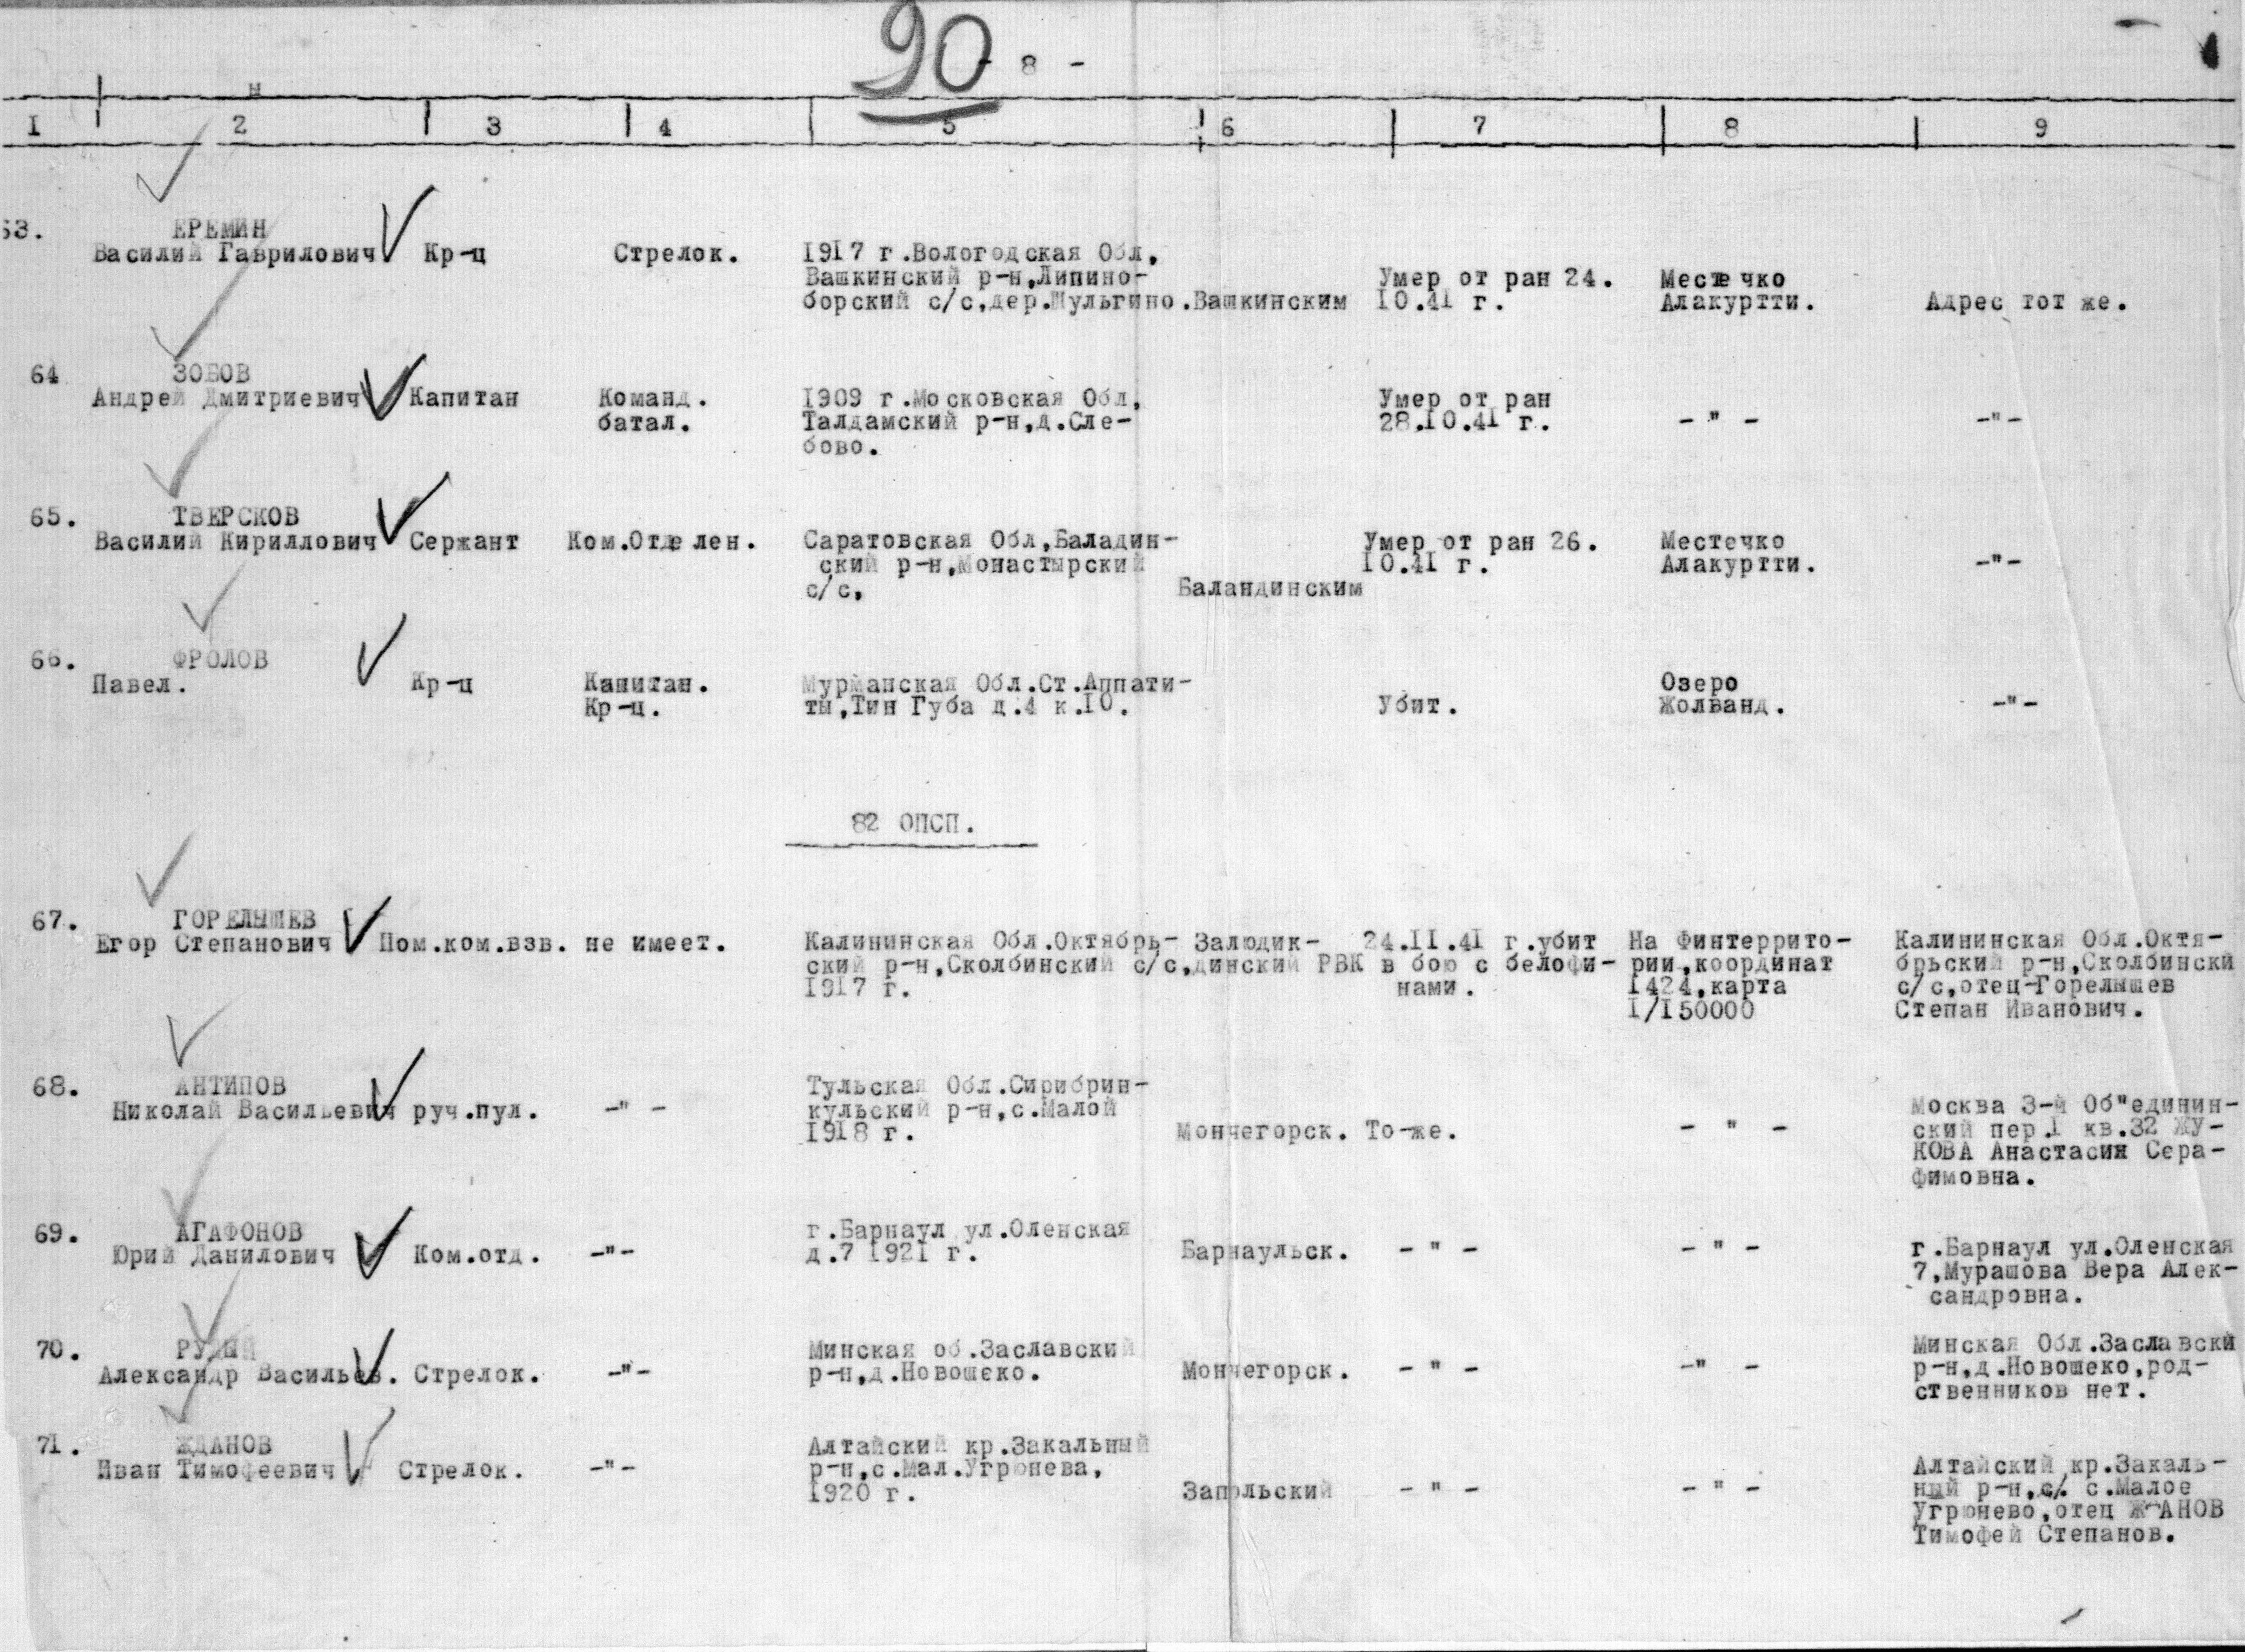 90
- 8 -
н
I 2 3 4 5 6 7 8 9
63. ЕРЕМИН
Василий Гаврилович Кр-ц Стрелок. 1917 г.Вологодская Обл,
Вашкинский р-н,Липино- Умер от ран 24. Местечко
борский с/с,дер.Шульгино.Вашкинским 10.41 г. Алакуртти. Адрес тот же.
64 ЗОБОВ
Андрей Дмитриевич Капитан Команд. 1909 г.Московская Обл, Умер от ран
батал. Талдамский р-н,д.Сле- 28.10.41 г. - " - -"-
бово.
65. ТВЕРСКОВ
Василий Кириллович Сержант Ком.Отделен. Саратовская Обл,Баладин- Умер от ран 26. Местечко
ский р-н,Монастырский 10.41 г. Алакуртти. -"-
с/с, Баландинским
66. ФРОЛОВ
Павел. Кр-ц Капитан. Мурманская Обл.Ст.Аппати- Озеро
Кр-ц. ты,Тин Губа д.4 к.10. Убит. Жолванд. -"-
82 ОПСП.
67. ГОРЕЛЫШЕВ
Егор Степанович Пом.ком.взв. не имеет. Калининская Обл.Октябрь- Залюдик- 24.II.41 г.убит На Финтеррито- Калининская Обл.Октя-
ский р-н,Сколбинский с/с,динский РВК в бою с белофи- рии,координат брьский р-н,Сколбински
1917 г. нами. 1424,карта с/с,отец-Горелышев
I/I50000 Степан Иванович.
68. АНТИПОВ Тульская Обл.Сирибрин-
Николай Васильевич руч.пул. -" - кульский р-н,с.Малой Москва 3-й Об"единин-
1918 г. Мончегорск. То-же. - " - ский пер.1 кв.32 ЖУ-
КОВА Анастасия Сера-
фимовна.
69. АГАФОНОВ г.Барнаул ул.Оленская
Юрий Данилович Ком.отд. -"- д.7 1921 г. Барнаульск. - " - - " - г.Барнаул ул.Оленская
7,Мурашова Вера Алек-
сандровна.
70. РУДЫЙ Минская об.Заславский Минская Обл.Заславски
Александр Васильев. Стрелок. -"- р-н,д.Новошеко. Мончегорск. - " - -" - р-н,д.Новошеко,род-
ственников нет.
71. ЖДАНОВ Алтайский кр.Закальный
Иван Тимофеевич Стрелок. -"- р-н,с.Мал.Угрюнева, Алтайский кр.Закаль-
1920 г. Запольский - " - - " - ный р-н,с/. с.Малое
Угрюнево,отец Ж-АНОВ
Тимофей Степанов.